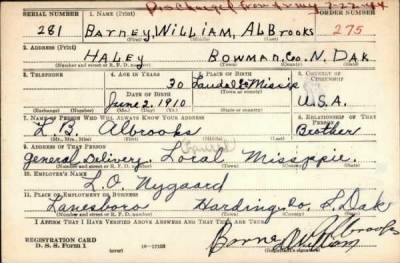 Discharged from Army 7-22-44
SERIAL NUMBER 1. NAME (Print) ORDER NUMBER
281 BARNEY, WILLIAM, ALBrooks 275
(First) (Middle) (Last)
2. ADDRESS (Print)
HALEY BOWMAN, Co. N. DAK
(Number and street or R. F. D. number) (Town) (County) (State)
3. TELEPHONE 4. AGE IN YEARS 5. PLACE OF BIRTH 6. COUNTRY OF CITIZENSHIP
30
DATE OF BIRTH
June 2, 1910 U.S.A.
(Exchange) (Number) (Mo.) (Day) (Yr.) (State or country)
7. NAME OF PERSON WHO WILL ALWAYS KNOW YOUR ADDRESS 8. RELATIONSHIP OF THAT PERSON
Albrooks Brother
(Mr., Mrs., Miss) (First) (Middle) (Last)
9. ADDRESS OF THAT PERSON
General Delivery
(Number and street or R. F. D. number) (Town) (County) (State)
10. EMPLOYER'S NAME
L. O. Nygaard
11. PLACE OF EMPLOYMENT OR BUSINESS
Lanesboro Harding Co. S. Dak
(Number and street or R. F. D. number) (Town) (County) (State)
I AFFIRM THAT I HAVE VERIFIED ABOVE ANSWERS AND THAT THEY ARE TRUE.
REGISTRATION CARD
D. S. S. Form 1
(over) 16-17105
William Albrooks